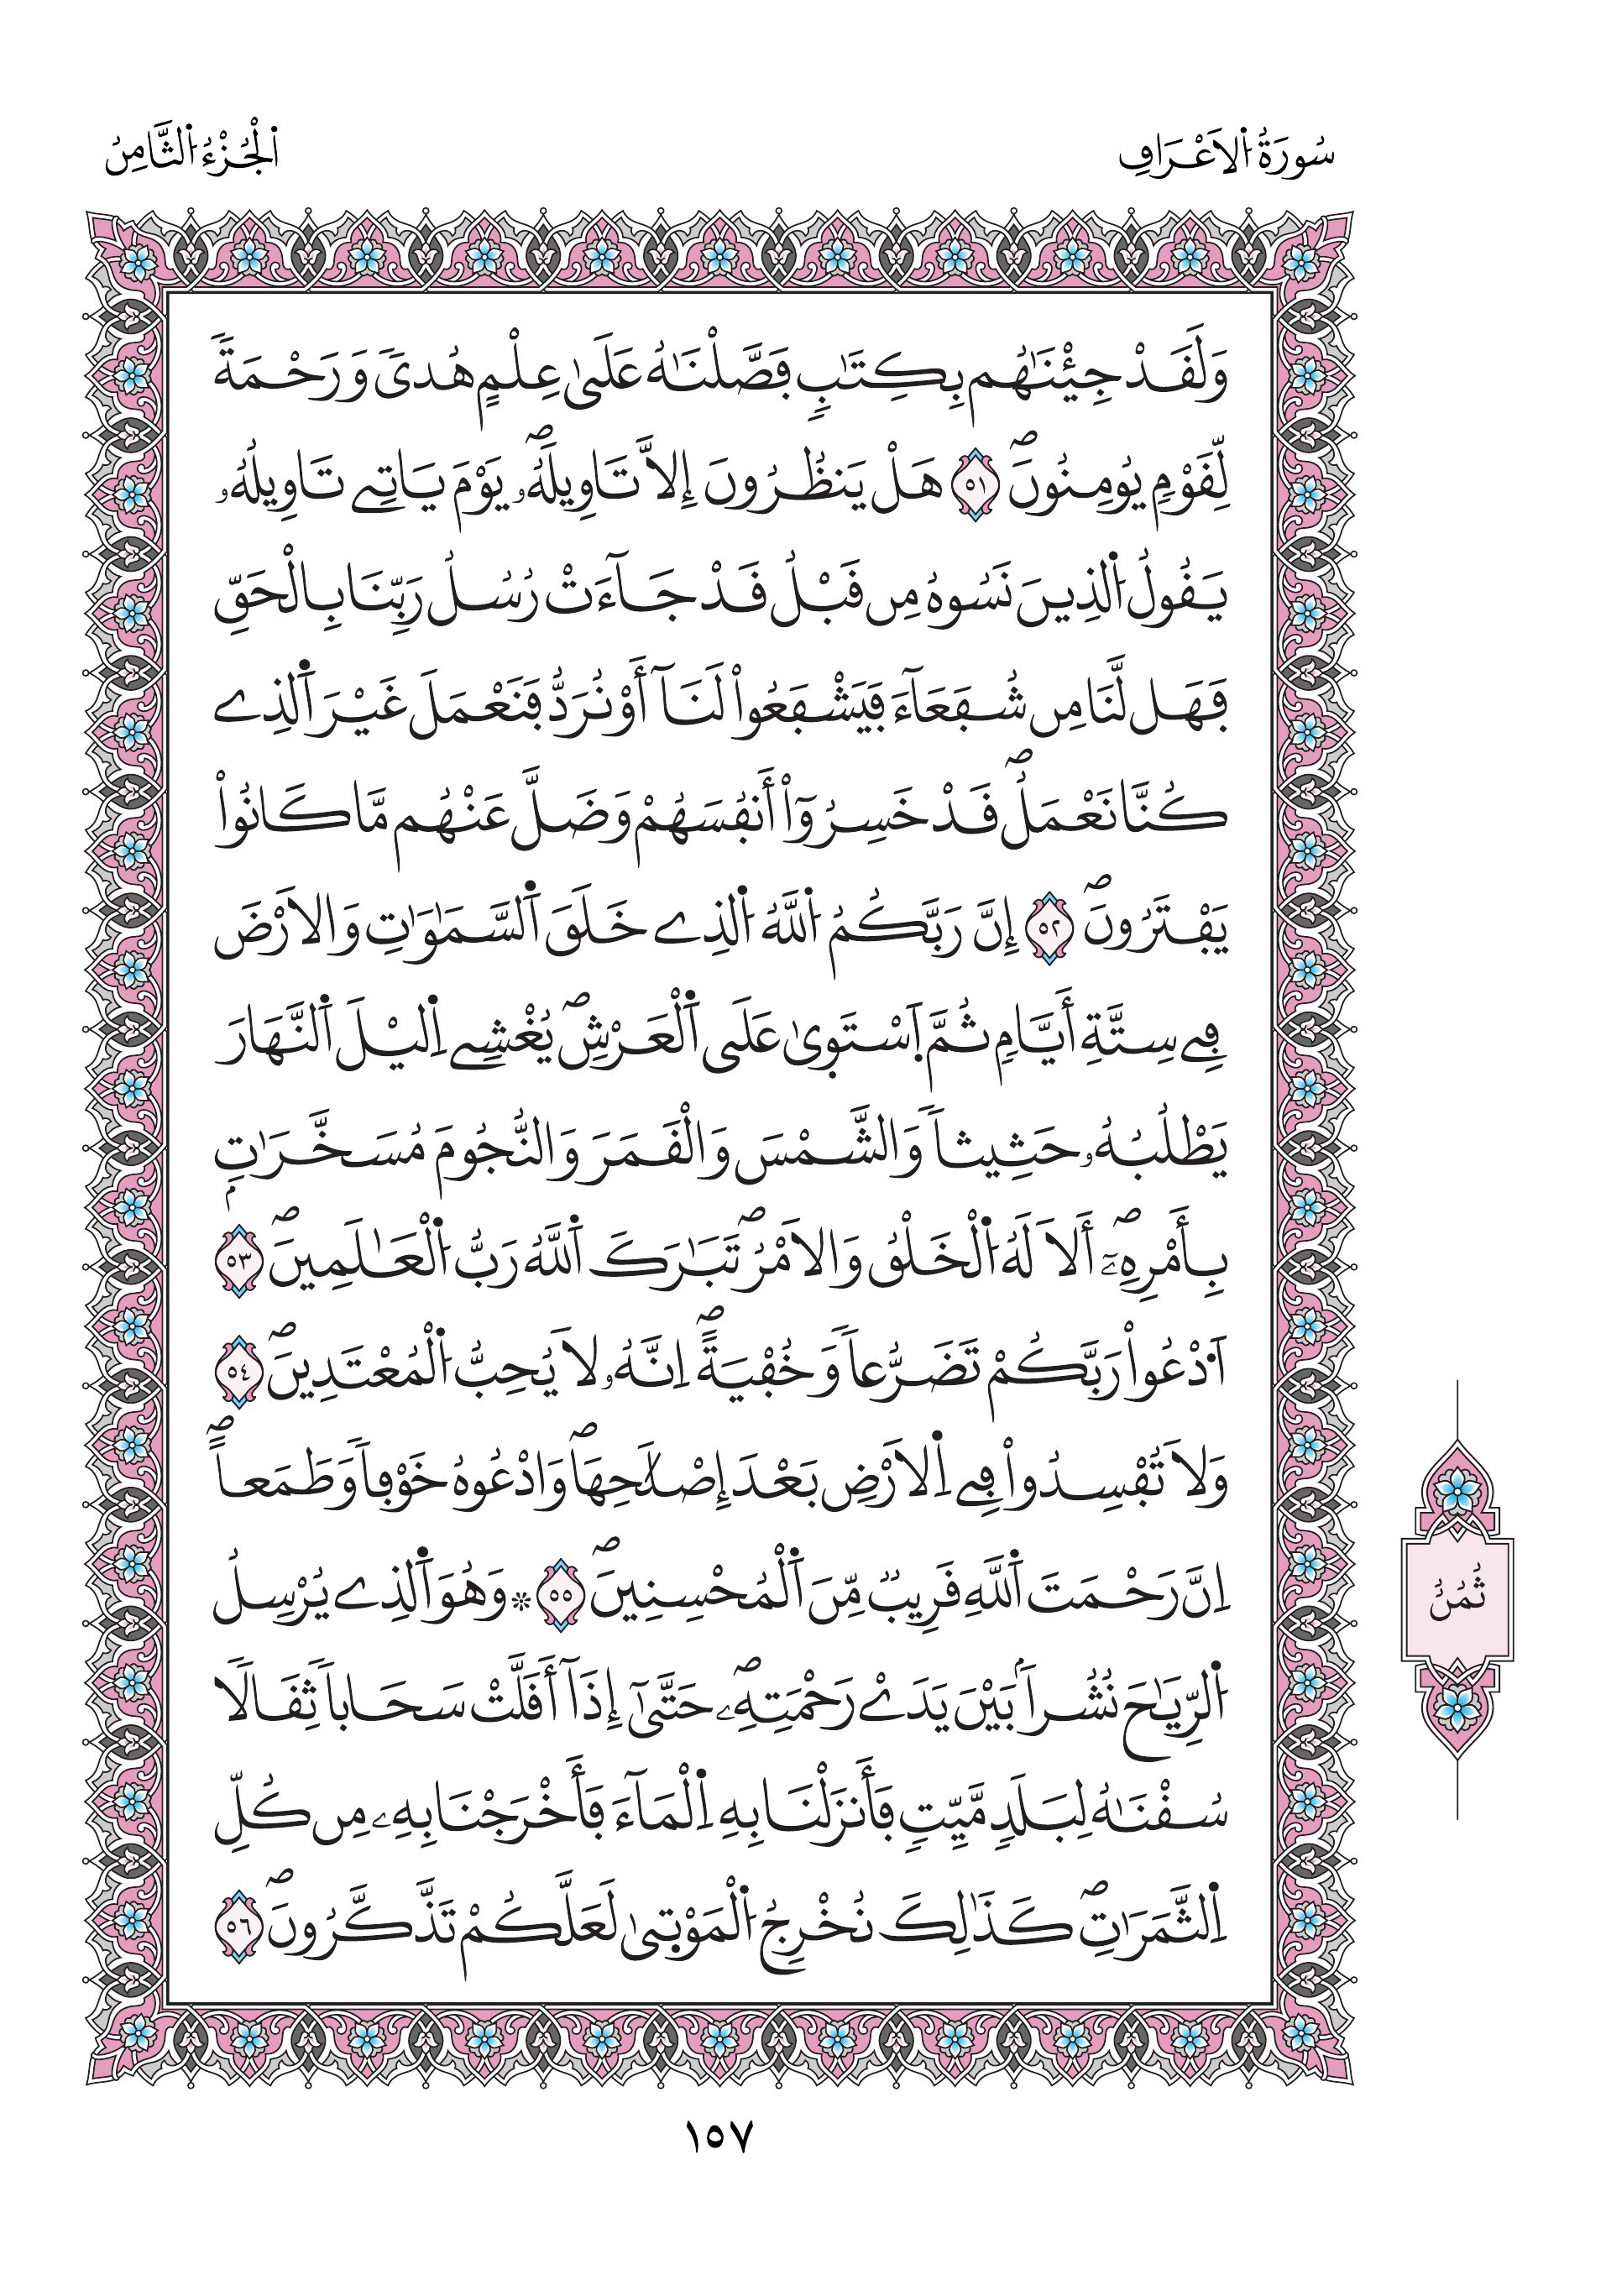 سُورَةُ اُ۬لَاعْرَافِ
اَ۬لْجُزْءُ اُ۬لثَّامِنُ
وَلَقَدْ جِئْنَٰهُم بِكِتَٰبٖ فَصَّلْنَٰهُ عَلَىٰ عِلْمٍ هُديٗ وَرَحْمَةٗ
لِّقَوْمٖ يُومِنُونَۖ ٥١ هَلْ يَنظُرُونَ إِلَّا تَاوِيلَهُۥۖ يَوْمَ يَاتِے تَاوِيلُهُۥ
يَقُولُ اُ۬لذِينَ نَسُوهُ مِن قَبْلُ قَدْ جَآءَتْ رُسُلُ رَبِّنَا بِالْحَقِّ
فَهَل لَّنَا مِن شُفَعَآءَ فَيَشْفَعُواْ لَنَآ أَوْ نُرَدُّ فَنَعْمَلَ غَيْرَ اَ۬لذِے
كُنَّا نَعْمَلُۖ قَدْ خَسِرُوٓاْ أَنفُسَهُمْ وَضَلَّ عَنْهُم مَّا كَانُواْ
يَفْتَرُونَۖ ٥٢ إِنَّ رَبَّكُمُ اُ۬للَّهُ اُ۬لذِے خَلَقَ اَ۬لسَّمَٰوَٰتِ وَالَارْضَ
فِے سِتَّةِ أَيَّامٖ ثُمَّ اَ۪سْتَوىٰ عَلَى اَ۬لْعَرْشِۖ يُغْشِے اِ۬ليْلَ اَ۬لنَّهَارَ
يَطْلُبُهُۥ حَثِيثاٗ وَالشَّمْسَ وَالْقَمَرَ وَالنُّجُومَ مُسَخَّرَٰتِۢ
بِأَمْرِهِۦٓۖ أَلَا لَهُ اُ۬لْخَلْقُ وَالَامْرُۖ تَبَٰرَكَ اَ۬للَّهُ رَبُّ اُ۬لْعَٰلَمِينَۖ ٥٣
اَ۟دْعُواْ رَبَّكُمْ تَضَرُّعاٗ وَخُفْيَةًۖ اِنَّهُۥ لَا يُحِبُّ اُ۬لْمُعْتَدِينَۖ ٥٤
وَلَا تُفْسِدُواْ فِے اِ۬لَارْضِ بَعْدَ إِصْلَٰحِهَاۖ وَادْعُوهُ خَوْفاٗ وَطَمَعاًۖ
اِنَّ رَحْمَتَ اَ۬للَّهِ قَرِيبٞ مِّنَ اَ۬لْمُحْسِنِينَۖ ٥٥ * وَهُوَ اَ۬لذِے يُرْسِلُ
اُ۬لرِّيَٰحَ نُشُراَۢ بَيْنَ يَدَےْ رَحْمَتِهِۦۖ حَتَّىٰٓ إِذَآ أَقَلَّتْ سَحَاباٗ ثِقَالٗا
سُقْنَٰهُ لِبَلَدٖ مَّيِّتٖ فَأَنزَلْنَا بِهِ اِ۬لْمَآءَ فَأَخْرَجْنَا بِهِۦ مِن كُلِّ
اِ۬لثَّمَرَٰتِۖ كَذَٰلِكَ نُخْرِجُ اُ۬لْمَوْتىٰ لَعَلَّكُمْ تَذَّكَّرُونَۖ ٥٦
ثُمُنُ
١٥٧